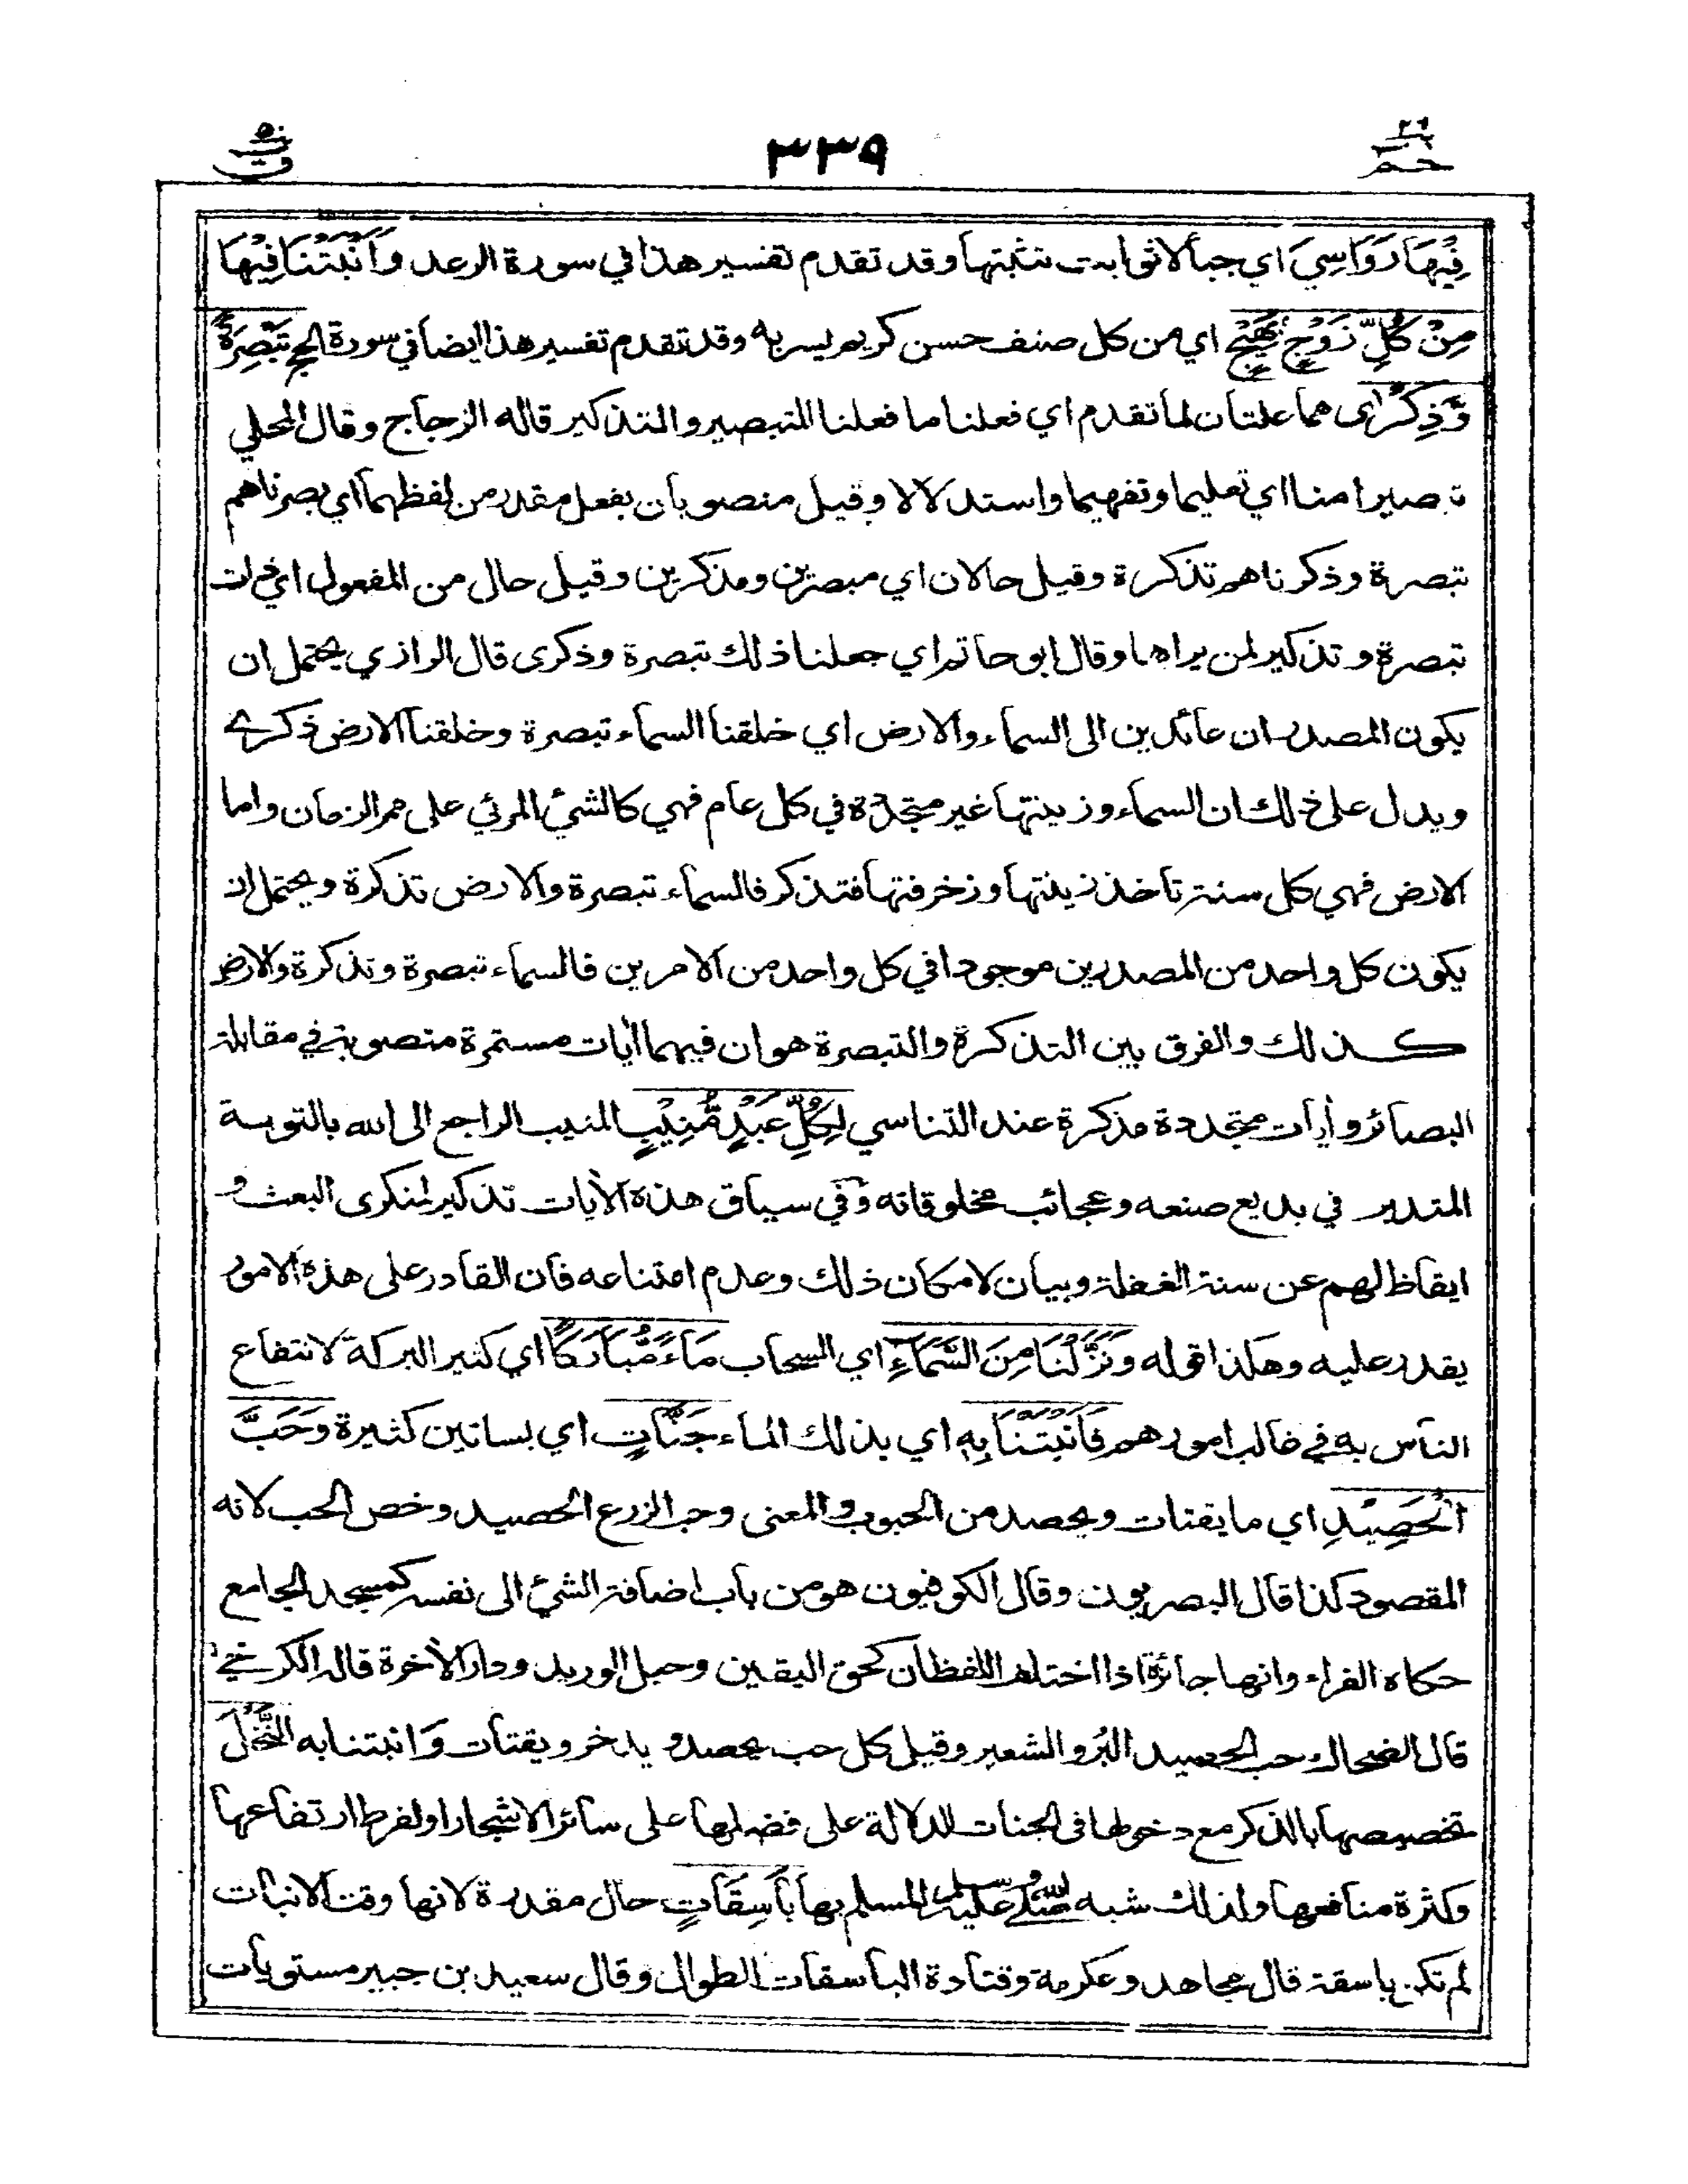 حم ٢٦
٣٣٩
ق ٥٠
فِيْهَا رَوَاسِيَ اي جبالا ثوابت تثبتها وقد تقدم تفسير هذا في سورة الرعد وَاَنْبَتْنَا فِيْهَا
مِنْ كُلِّ زَوْجٍ بَهِيْجٍ اي من كل صنف حسن كريم يسر به وقد تقدم تفسير هذا ايضا في سورة الحج تَبْصِرَةً
وَّذِكْرٰى هما علتان لما تقدم اي فعلنا ما فعلنا للتبصير والتذكير قاله الزجاج وقال المحلي
تبصيرا منا اي تعليما وتفهيما واستدلالا وقيل منصوبان بفعل مقدر من لفظهما اي بصرناهم
تبصرة وذكرناهم تذكرة وقيل حالان اي مبصرين ومذكرين وقيل حال من المفعول اي ذات
تبصرة وتذكير لمن يراها وقال ابو حاتم اي جعلنا ذلك تبصرة وذكرى قال الرازي يحتمل ان
يكون المصدران عائدين الى السماء والارض اي خلقنا السماء تبصرة وخلقنا الارض ذكرے
ويدل على ذلك ان السماء وزينتها غير متجددة في كل عام فهي كالشيء المرئي على ممر الزمان واما
الارض فهي كل سنة تأخذ زينتها وزخرفتها فتذكر فالسماء تبصرة والارض تذكرة ويحتمل ان
يكون كل واحد من المصدرين موجودا في كل واحد من الامرين فالسماء تبصرة وتذكرة والارض
كذلك والفرق بين التذكرة والتبصرة هو ان فيهما اٰيات مستمرة منصوبة في مقابلة
البصائر واٰيات متجددة مذكرة عند التناسي لِكُلِّ عَبْدٍ مُّنِيْبٍ المنيب الراجع الى الله بالتوبة
المتدبر في بديع صنعه وعجائب مخلوقاته وفي سياق هذه الاٰيات تذكير لمنكرى البعث و
ايقاظ لهم عن سنة الغفلة وبيان لامكان ذلك وعدم امتناعه فان القادر على هذه الامور
يقدر عليه وهكذا قوله وَنَزَّلْنَا مِنَ السَّمَآءِ اي السحاب مَآءً مُّبَارَكًا اي كثير البركة لانتفاع
الناس به في غالب امورهم فَاَنْبَتْنَا بِهٖ اي بذلك الماء جَنّٰتٍ اي بساتين كثيرة وَحَبَّ
الْحَصِيْدِ اي ما يقتات ويحصد من الحبوب والمعنى وحب الزرع الحصيد وخص الحب لانه
المقصود كذا قال البصريون وقال الكوفيون هو من باب اضافة الشيء الى نفسه كمسجد الجامع
حكاه الفراء وانها جائزة اذا اختلف اللفظان كحق اليقين وحبل الوريد ودار الاٰخرة قاله الكرخي
قال الضحاك وحب الحصيد البُر والشعير وقيل كل حب يحصد ويدخر ويقتات وَانبتنا به النَّخْلَ
تخصيصها بالذكر مع دخولها في الجنات للدلالة على فضلها على سائر الاشجار او لفرط ارتفاعها
وكثرة منافعها ولذلك شبه صلى الله عليه وسلم المسلم بها بَاسِقَاتٍ حال مقدرة لانها وقت الانبات
لم تكن باسقة قال مجاهد وعكرمة وقتادة الباسقات الطوال وقال سعيد بن جبير مستويات